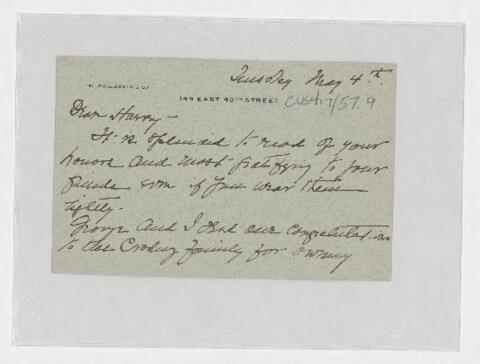 Tuesday May 4th.
144 EAST 40TH STREET
CUS417/57.9
Dear Harvey—
It is splendid to read of your
honors and most gratifying to your
friends even if you wear them
lightly.
George and I send our congratulations
to the Cushing family for owning